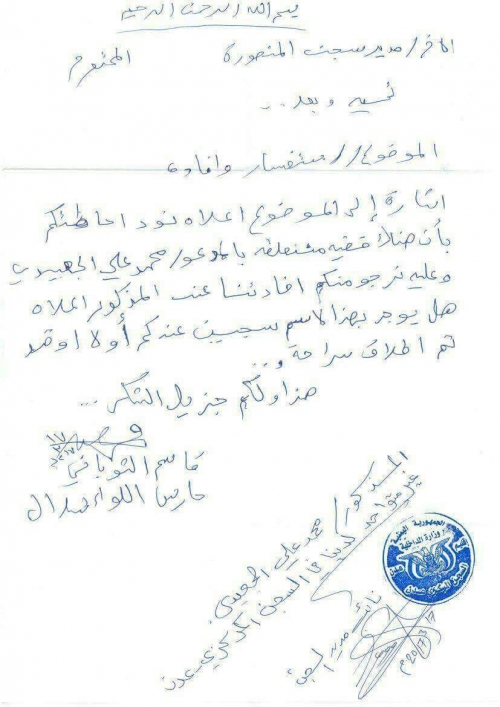 بسم الله الرحمن الرحيم
الأخ/ مدير سجن المنصورة المحترم
تحية وبعد..
الموضوع// استفسار وافادة
اشارة إلى الموضوع اعلاه نود احاطتكم
بأن هناك قضيه متعلقه بالمدعو/ محمد علي الجعيدي
وعليه نرجو منكم افادتنا عن المذكور اعلاه
هل يوجد بهذا الاسم سجين عندكم أولا اوقد
تم اطلاق سراحة
هذا ولكم جزيل الشكر...
قاسم الثوباني
حارس اللواء
المذكور/ محمد علي الجعيدي
غير متواجد لدينا في السجن المركزي عدن
نائب مدير السجن
الجمهورية اليمنية
وزارة الداخلية